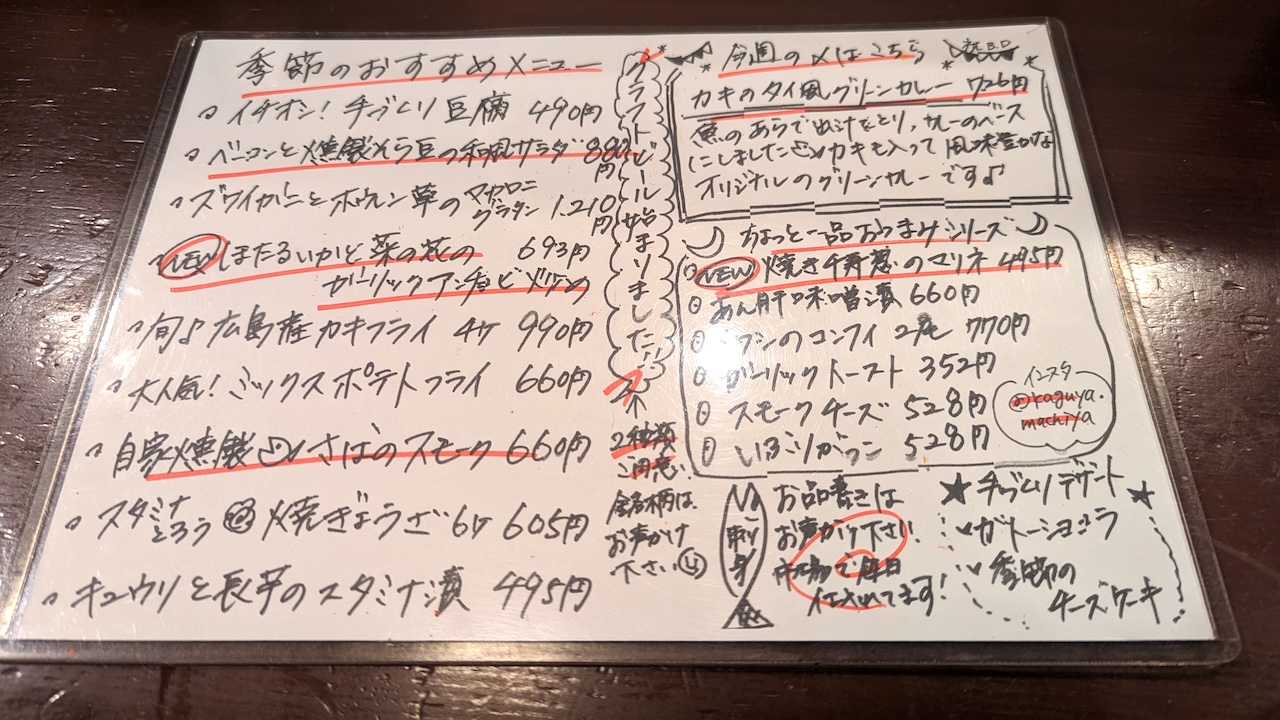 季節のおすすめメニュー
イチオシ！手づくり豆腐 490円
ベーコンと燻製そら豆の和風サラダ 880円
ズワイガニとホウレン草のマカロニグラタン 1,210円
NEW ほたるいかと菜の花の 693円
ガーリックアンチョビソテー
旬♪広島産カキフライ 4ケ 990円
大人気！ミックスポテトフライ 660円
自家燻製 さばのスモーク 660円
スタミナ 焼きぎょうざ 6ケ 605円
キュウリと長芋のスタミナ漬 495円
クラフトビール始まりました！
2種類
ご用意
銘柄は
お声がけ
下さい
今週の〆はこちら
カキのタイ風グリーンカレー 726円
魚のあらで出汁をとり、カレーのベース
にしました カキも入って風味豊かな
オリジナルのグリーンカレーです♪
ちょっと一品おつまみシリーズ
NEW 焼き千寿葱のマリネ 495円
あん肝味噌漬 660円
イワシのコンフィ 2尾 770円
ガーリックトースト 352円
スモークチーズ 528円
いぶりがっこ 528円
インスタ
@kaguya.
machiya
お刺身
お品書きは
お声がけ下さい
市場で毎日
仕入れてます！
★手づくりデザート★
ガトーショコラ
季節の
チーズケーキ